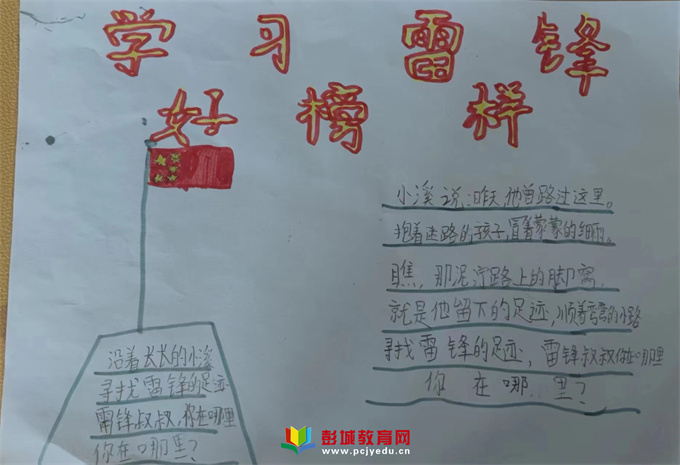 学习雷锋
好榜样
沿着长长的小溪
寻找雷锋的足迹
雷锋叔叔,你在哪里
你在哪里?
小溪说:昨天,他曾路过这里。
抱着迷路的孩子,冒着蒙蒙的细雨。
瞧,那泥泞路上的脚窝,
就是他留下的足迹,顺着弯弯的小路
寻找雷锋的足迹,雷锋叔叔你在哪里
你在哪里?
彭城教育网
www.pcjyedu.cn